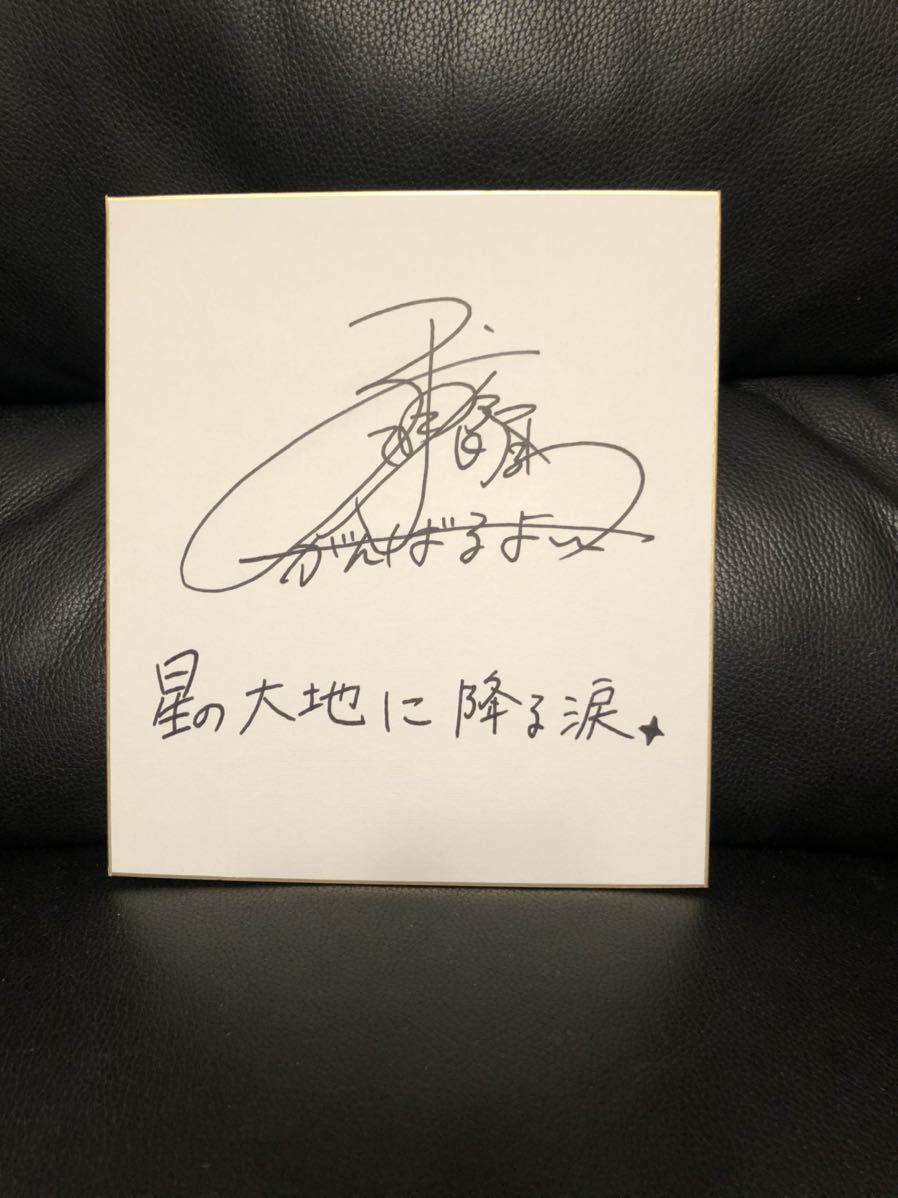 がんばるよ
星の大地に降る涙